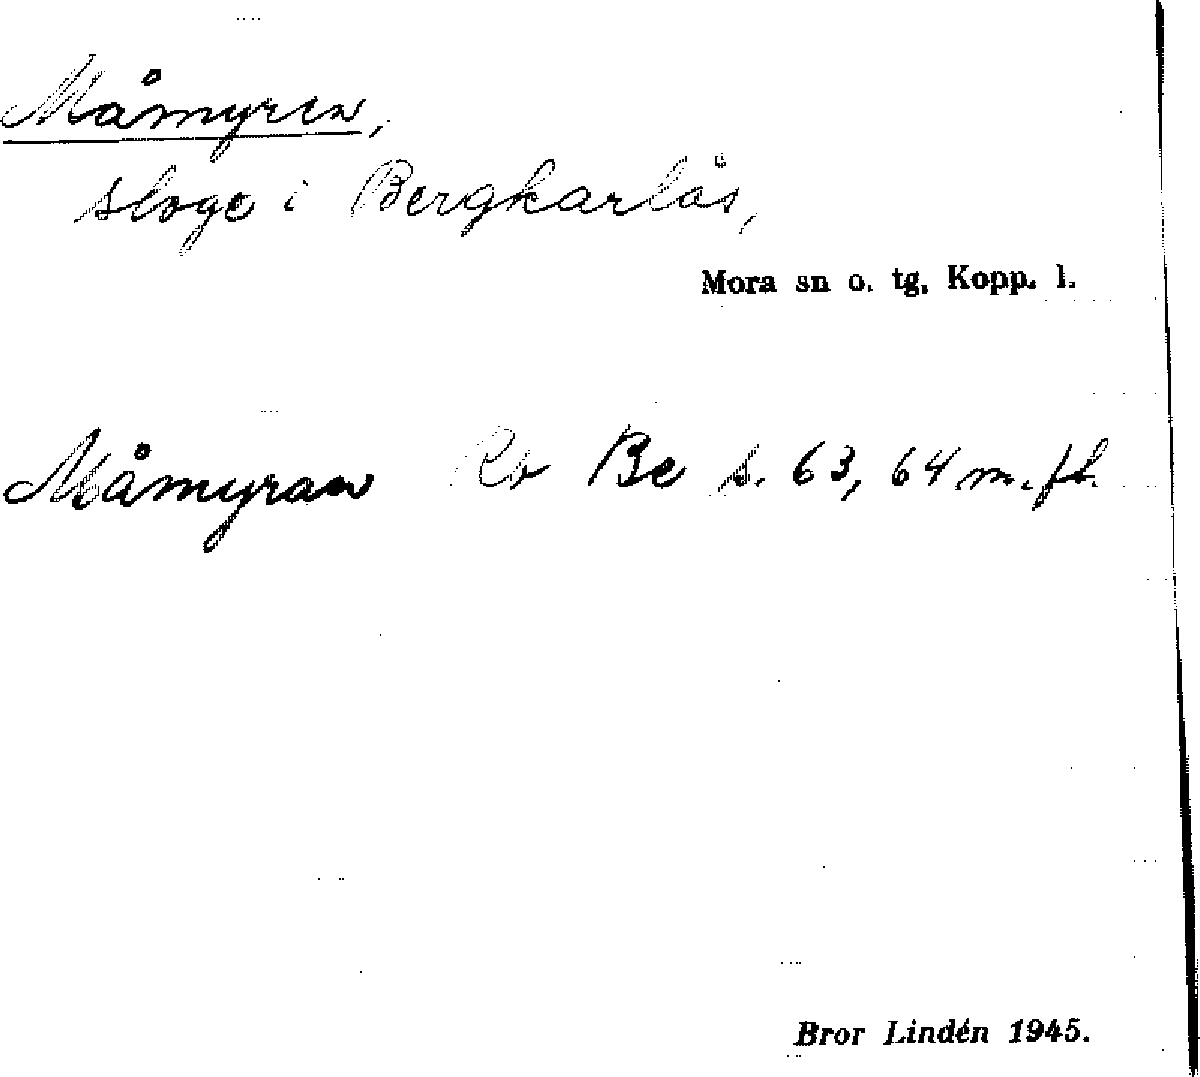 Måmyren,
sloge i Bergkarlås,
Mora sn o. tg. Kopp. l.
Måmyran Rb Be s. 63, 64 m. fl.
Bror Lindén 1945.